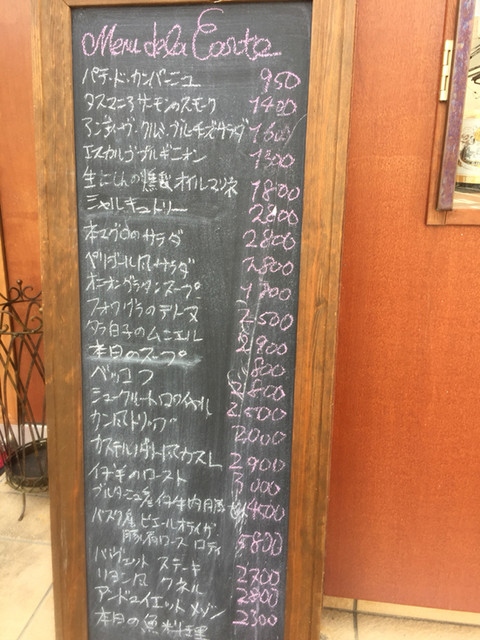 Menu de la Carte
パテ・ド・カンパーニュ 950
タスマニアサーモンのスモーク 1400
アンディーヴ・クルミ・ブルーチーズサラダ 1600
エスカルゴブルギニオン 1300
生にしんの燻製オイルマリネ 1800
シャルキュトリー 2800
本マグロのサラダ 2800
ペリゴール風サラダ 2800
オニオングラタンスープ
フォワグラのテリーヌ 2500
タラ白子のムニエル 2900
本日のスープ 800
ベッコフ 2800
シュークルートロワイヤル 2500
カン風トリップ 2000
カステルノダリ風カスレ 2900
仔羊のロースト 3000
ブルターニュ産仔牛内 4500
バスク産ピエールオテイザ
豚肩ロース ロティ 5800
バヴェットステーキ 2700
リヨン風クネル 2800
アンドゥイエットメゾン 2300
本日の魚料理